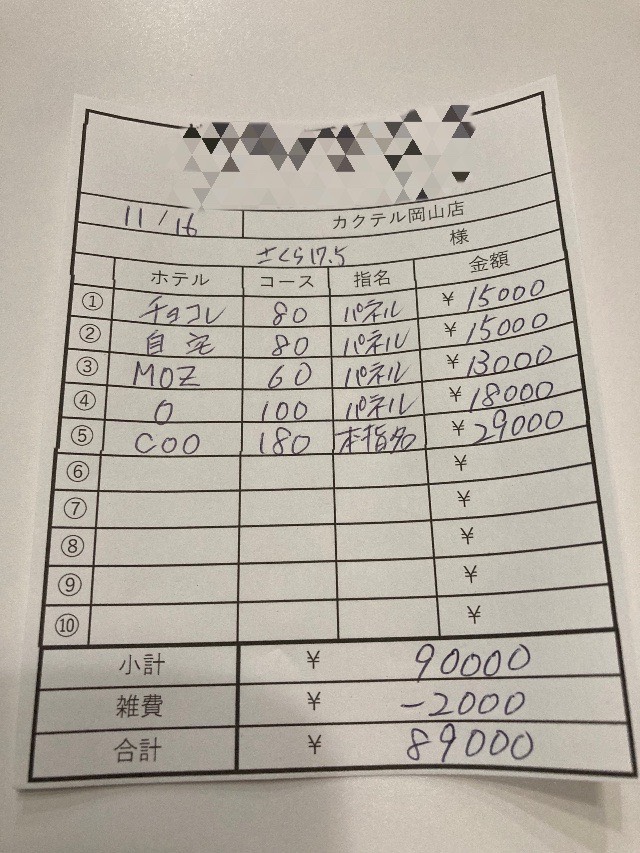 11/16 カクテル岡山店
さくら17.5 様
ホテル コース 指名 金額
① チョコレ 80 パネル ¥15000
② 自宅 80 パネル ¥15000
③ MOZ 60 パネル ¥13000
④ O 100 パネル ¥18000
⑤ COO 180 本指名 ¥29000
⑥ ¥
⑦ ¥
⑧ ¥
⑨ ¥
⑩ ¥
小計 ¥ 90000
雑費 ¥ -2000
合計 ¥ 89000